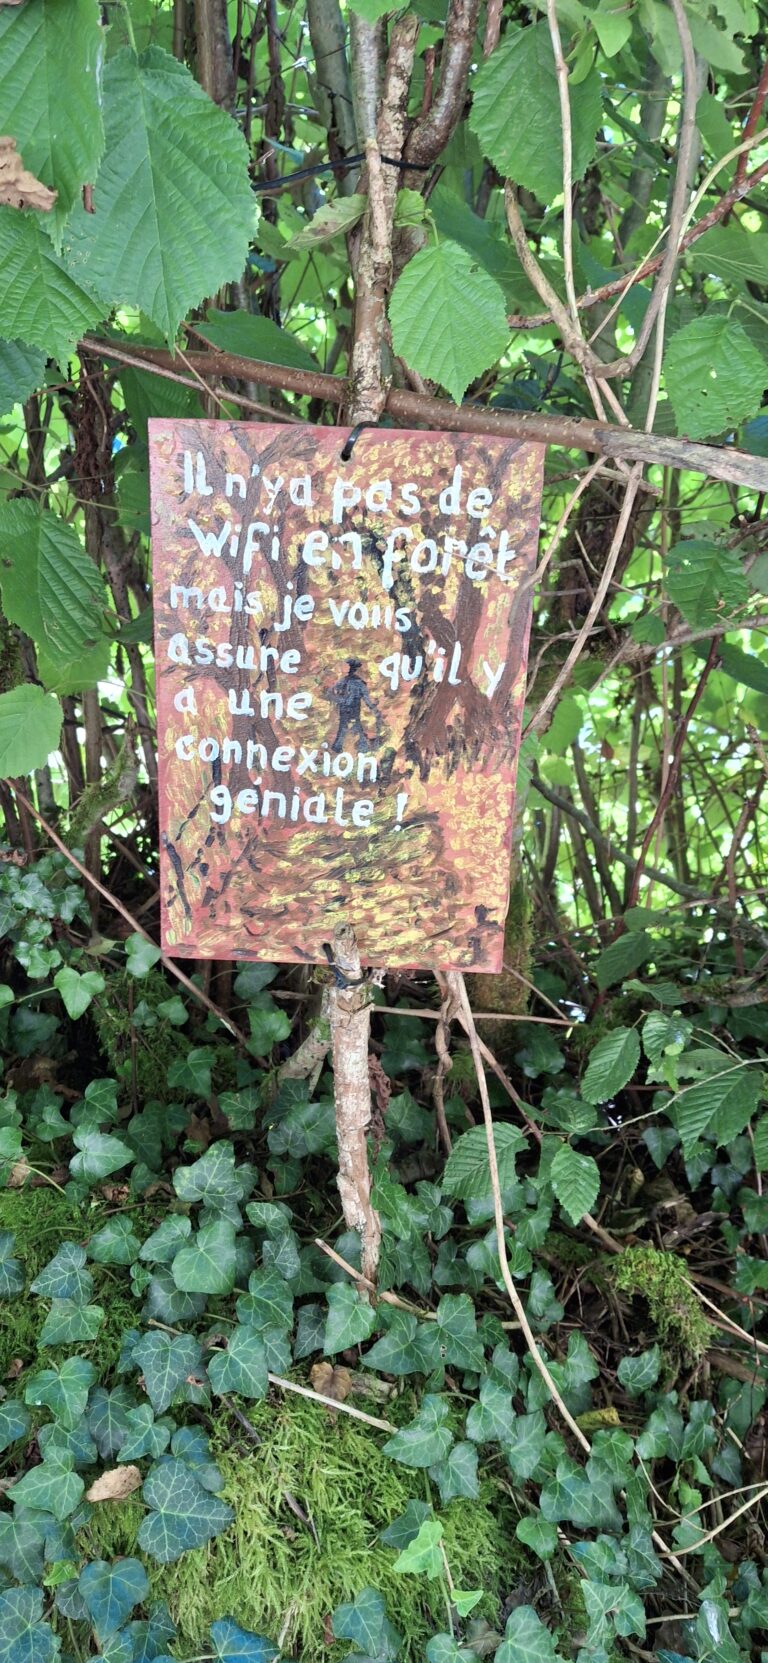 Il n'ya pas de
Wifi en forêt
mais je vous
assure qu'il y
a une
connexion
géniale !